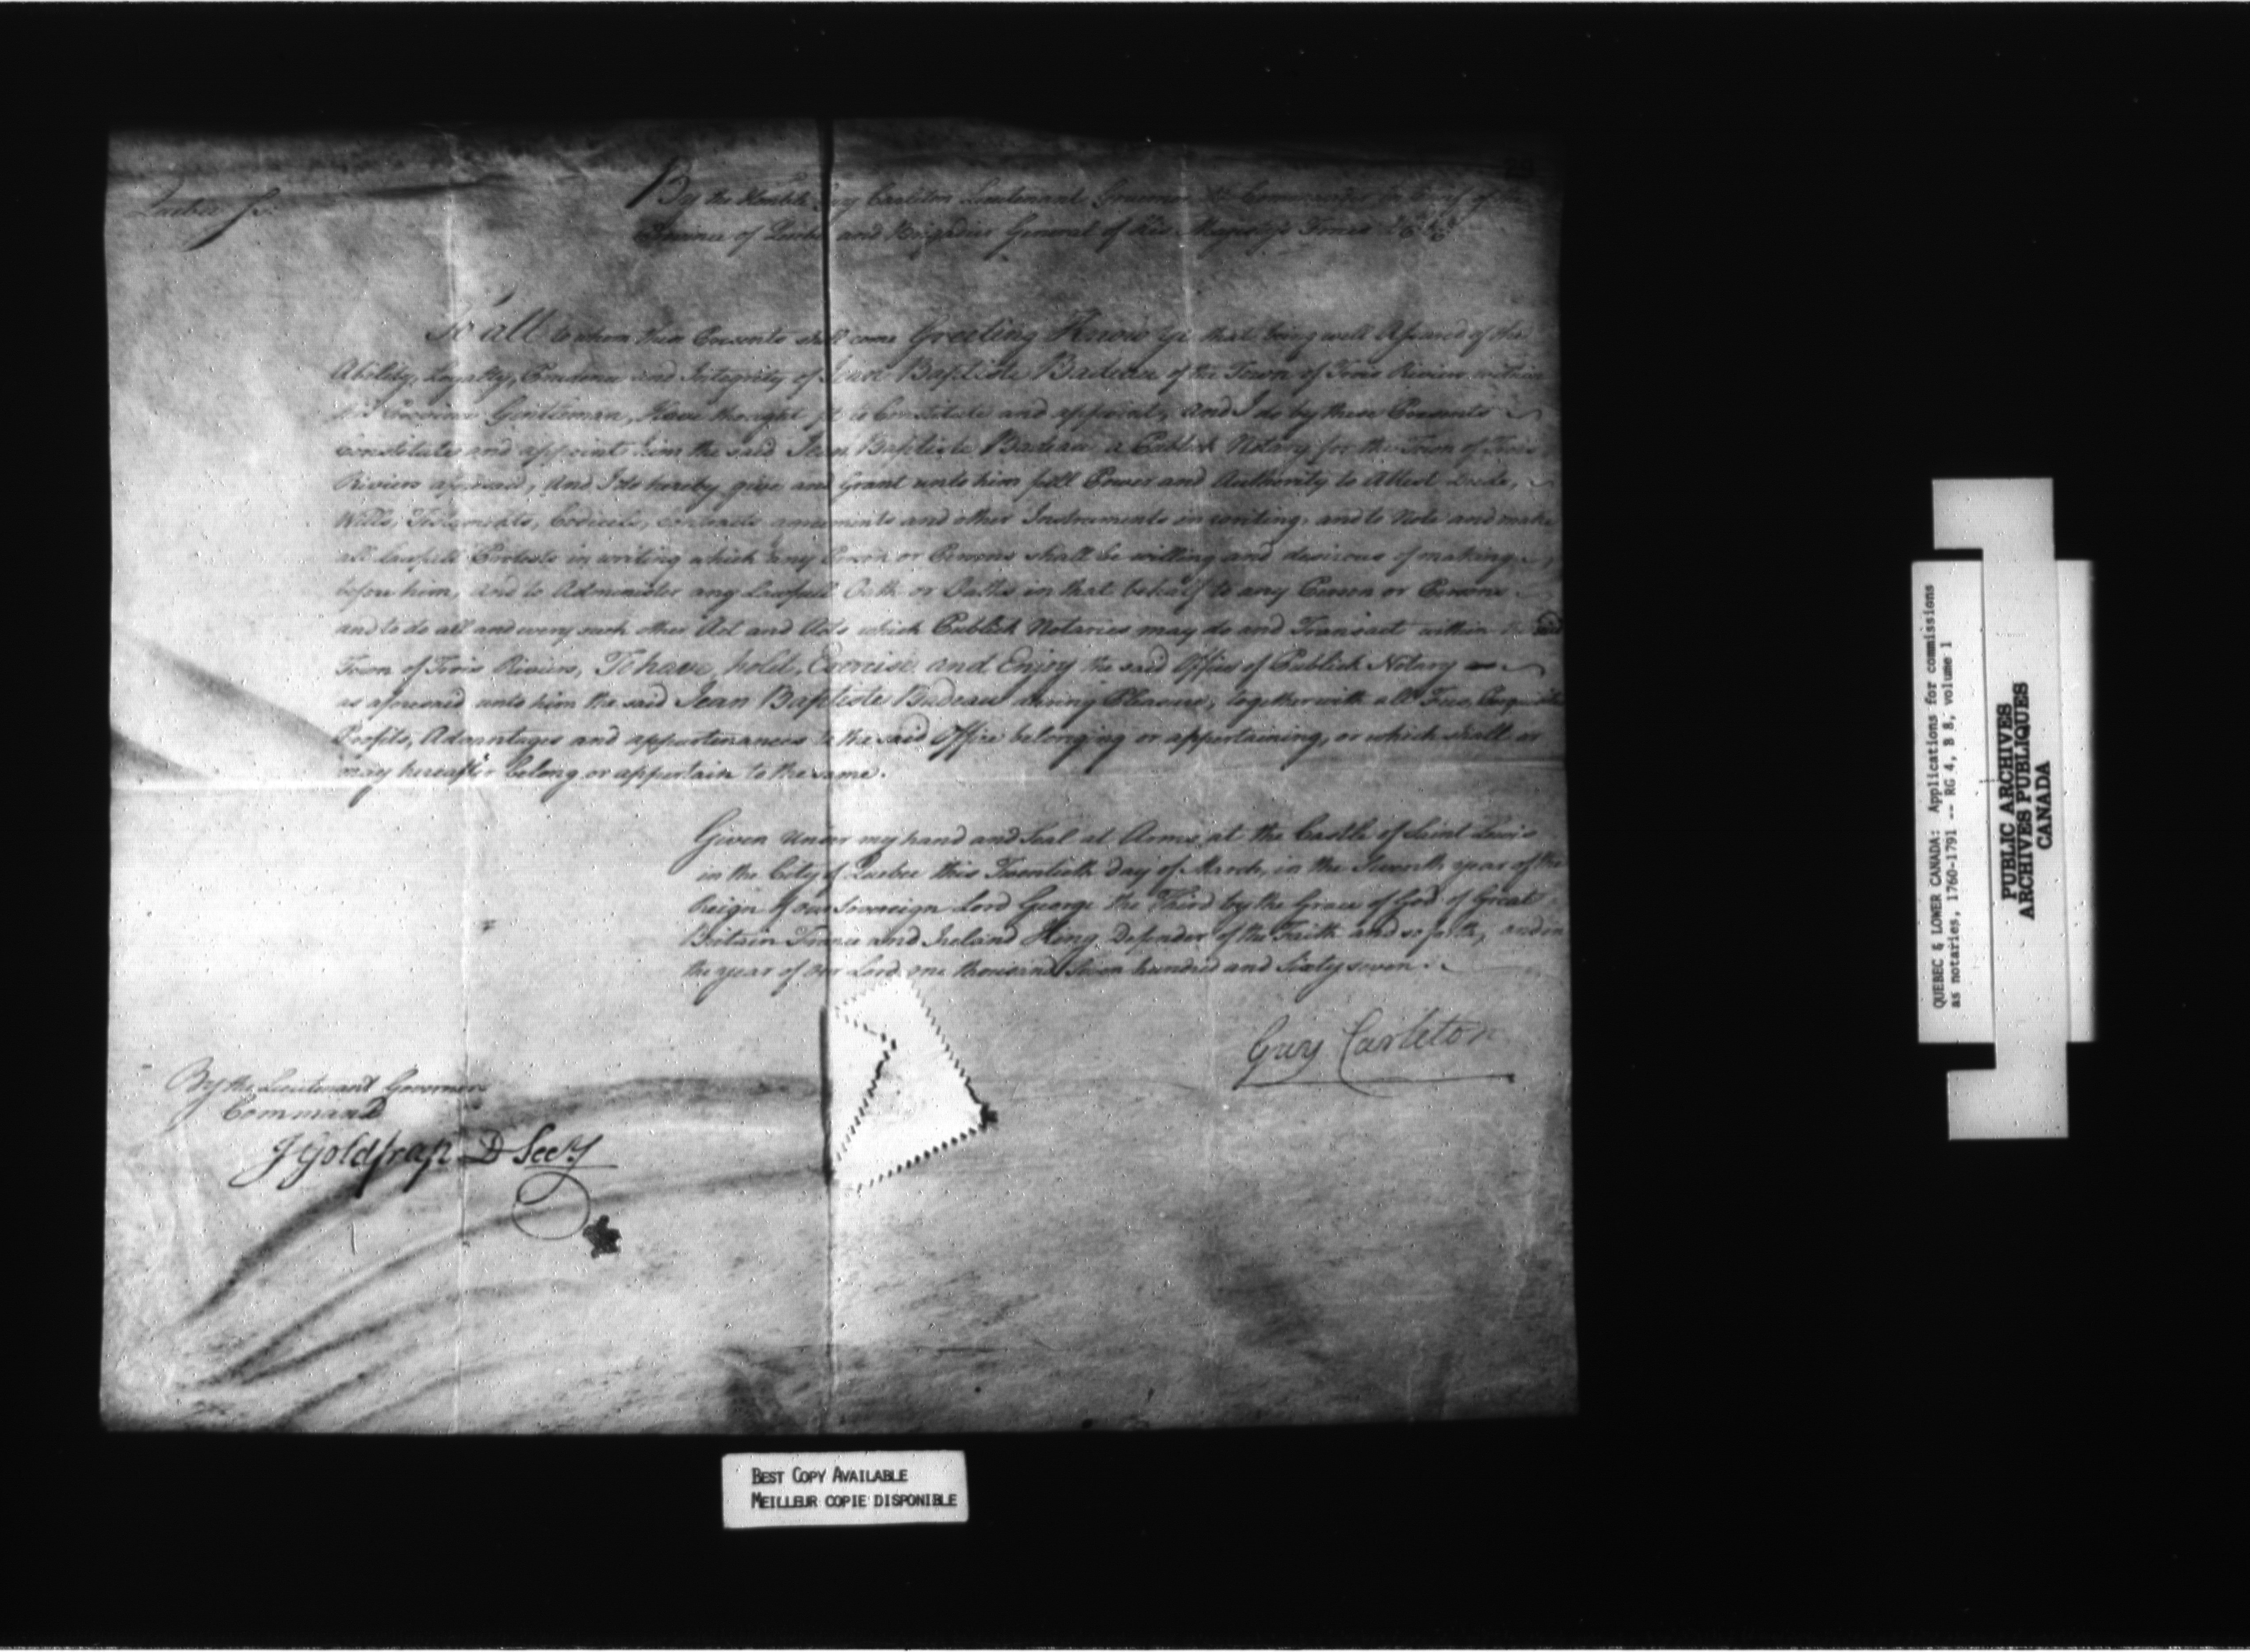 Quebec ss.
By the Honble Guy Carleton Lieutenant Governor & Commander in Chief of the
Province of Quebec and Brigadier General of His Majestys Forces &c &c &c
To all to whom these Presents shall come Greeting Know ye that being well Assured of the
Ability, Loyalty, Prudence and Integrity of Jean Baptiste Badeau of the Town of Trois Riviers within
Province Gentleman, Have thought fit to Constitute and appoint, and I do by these Presents
Constitute and appoint him the said Jean Baptiste Badeau, a Publick Notary for the Town of Trois
Riviers aforesaid, and I do hereby give and Grant unto him full Power and Authority to Attest Deeds,
Wills, Testaments, Codicils, contracts agreements and other Instruments in writing, and to Note and make
all lawfull Protests in writing which any Person or Persons shall be willing and desirous of making
before him, and to Administer any Lawfull Oath or Oaths in that behalf to any Person or Persons
and to do all and every such other Act and Acts which Publick Notaries may do and Transact within the said
Town of Trois Riviers, To have, hold, Exercise and Enjoy the said Office of Publick Notary
as aforesaid unto him the said Jean Baptiste Badeau during Pleasure, together with all Fees, Perquisites
Profits, Advantages and appurtenances to the said Office belonging or appertaining, or which shall or
may hereafter belong or appertain to the same.
Given under my hand and Seal at Arms at the Castle of Saint Lewis
in the City of Quebec this Twentieth day of March, in the Seventh year of the
Reign of our Sovereign Lord George the Third by the Grace of God of Great
Britain France and Ireland King Defender of the Faith and so forth, and in
the year of our Lord one thousand Seven hundred and Sixty seven.
Guy Carleton
By the Lieutenant Governors
Command
J Goldfrap D Secry
BEST COPY AVAILABLE
MEILLEUR COPIE DISPONIBLE
QUEBEC & LOWER CANADA: Applications for commissions
as notaries, 1760-1791 -- RG 4, B 8, volume 1
PUBLIC ARCHIVES
ARCHIVES PUBLIQUES
CANADA